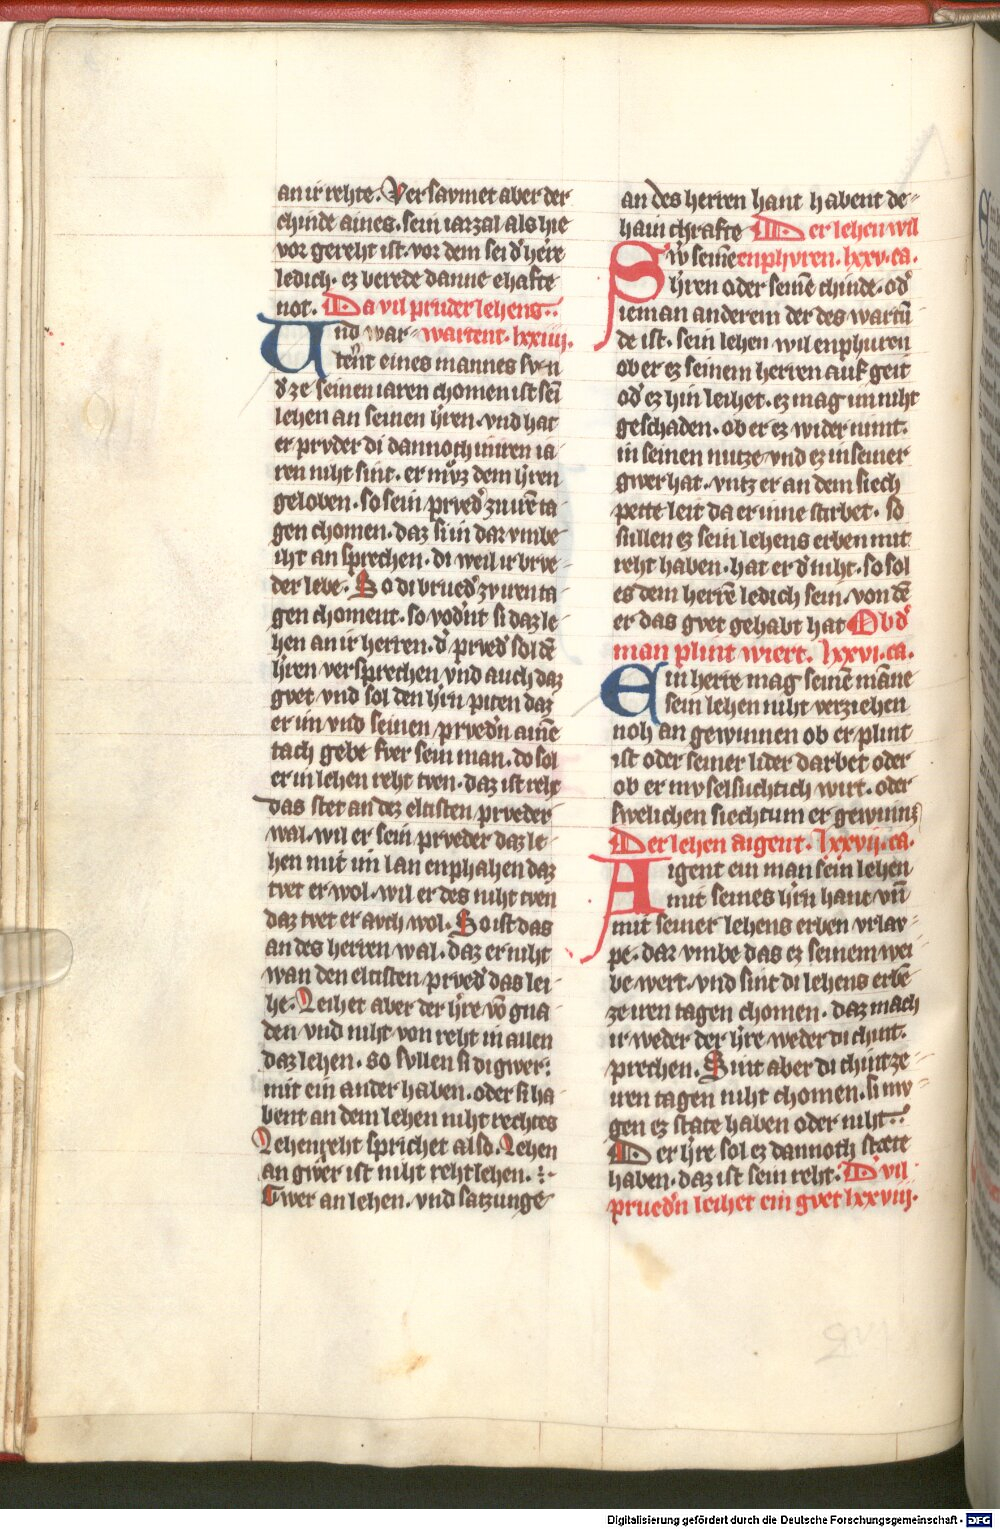 an ir rehte. Versavmet aber der
chinde aines. sein iarzal als hie
vor gereht ist. vor dem sei dˀ herre
ledich. ez berede danne ehafte
not. Da vil pruder lehens
wartent. lxxiiii.
Und war-
tent eines mannes svn
dˀ ze seinen iaren chomen ist sein̄
lehen an seinen hˀren. vnd hat
er prvder di dannoch in iren ia-
ren niht sint. er mvͦz dem hˀren
geloben. so sein prvedˀ zu irē ta-
gen chomen. daz si in dar vmbe
iht an sprechen. di weil ir brve-
der lebe. So di bruedˀ zv iren ta-
gen choment. so vodˀnt si daz le-
hen an ir herren. dˀ prvedˀ sol dē
hˀren versprechen vnd auch daz
gvet vnd sol den hˀrn piten daz
er im vnd seinen prvedˀn ainē
tach gebe fver sein man. do sol
er in lehen reht tven. daz ist reht
das ster an dez eltisten prveder
wal. wil er sein prveder daz le-
hen mit im lan enphahen daz
tvet er wol. wil er des niht tven
daz tvet er avch wol. So ist das
an des herren wal. daz er niht
wan den eltisten prvedˀ das lei-
he. Leihet aber der hˀre vō gna-
den vnd niht von reht in allen
daz lehen. so svllen si di gwer
mit ein ander haben. oder si ha-
bent an dem lehen niht rechtes
Lehenreht sprichet also. Lehen
an gwer ist niht reht lehen.
Swer an lehen. vnd satzunge
an des herren hant habent de-
hain chrafte Der lehen wil
enphvren. lxxv. ca.
Swˀ seinē
hˀren oder seinē chinde. odˀ
ieman anderem der des wartū
de ist. sein lehen wil enphuren
ob er ez seinem herren auf geit
odˀ ez hin leihet. ez mag im niht
geschaden. ob er ez wider nimt.
in seinen nutze vnd ez in seiner
gwer hat. vntz er an dem siech
pette leit da er inne stirbet. so
sullen ez sein lehens erben mit
reht haben. hat er dˀ niht. so sol
es dem herrē ledich sein. von dē
er das gvet gehabt hat Ob dˀ
man plint wiert. lxxvi. ca.
Ein herre mag seinē māne
sein lehen niht verziehen
noh an gewinnen ob er plint
ist oder seiner lider darbet oder
ob er mvselsuchtich wirt. oder
swelichen siechtum er gewinnz
Der lehen aigent. lxxvii. ca.
Aigent ein man sein lehen
mit seines hˀrn hant vn̄
mit seiner lehens erben vrlav-
pe. dar vmbe das ez seinem wei-
be wert. vnd sint di lehens erbē
ze iren tagen chomen. daz mach
ir weder der hˀre weder di chint.
prechen. Sint aber di chint ze-
iren tagen niht chomen. si mv-
gen ez state haben oder niht.
Der hˀre sol ez dannoch stæte
haben. daz ist sein reht. Dˀ vil
pruedˀn leihet ein gvet lxxviii.
Digitalisierung gefördert durch die Deutsche Forschungsgemeinschaft - DFG